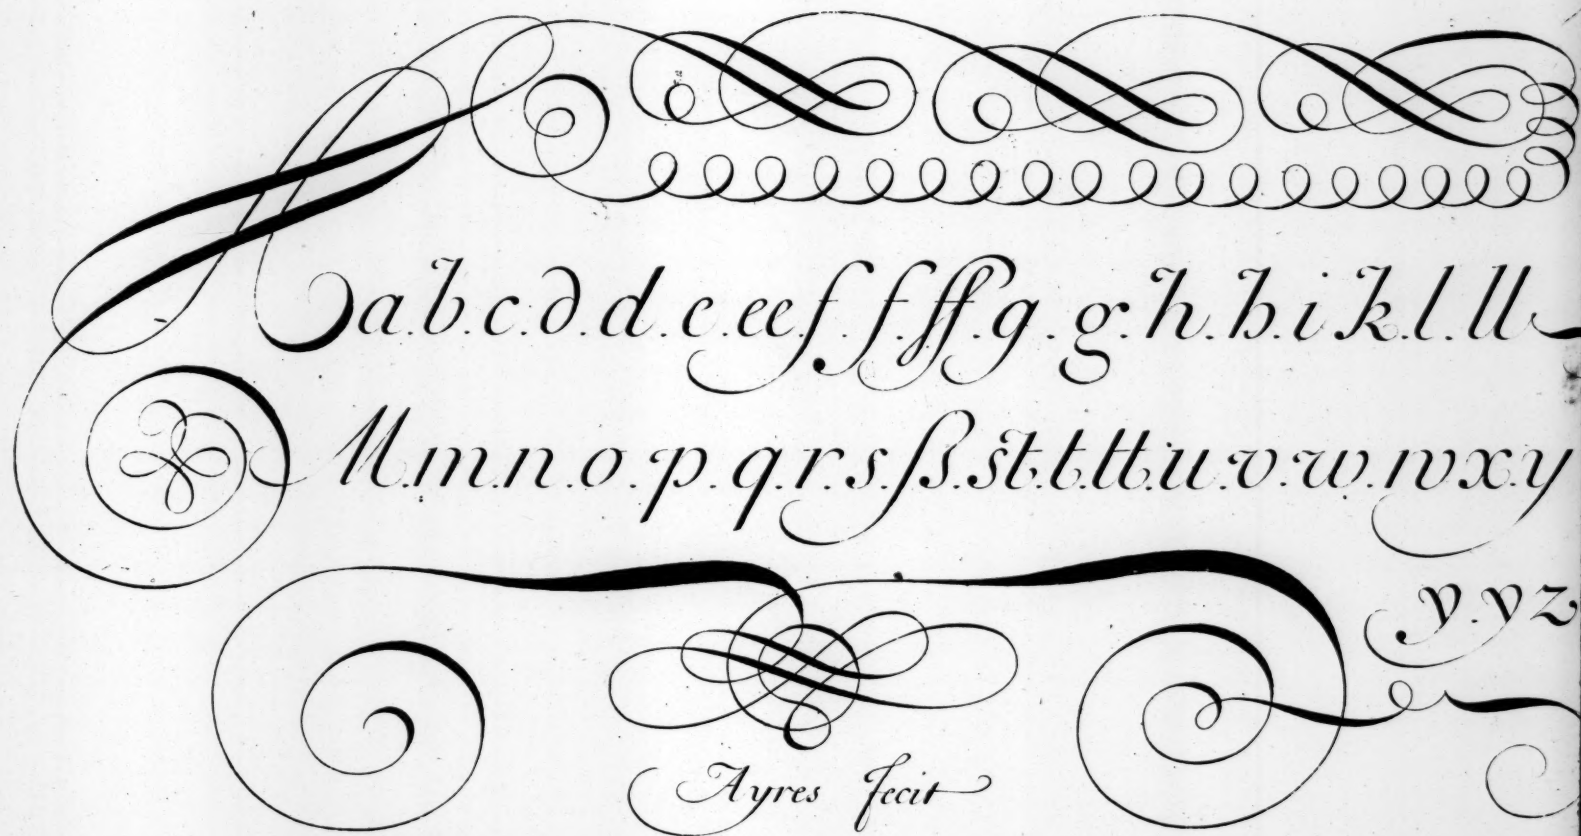 a.b.c.d.d.e.ee f.f.ff.g.g.h.h.i.k.l.ll
M.m.n.o.p.q.r.s.ß.st.t.tt.u.v.w.w x.y
y.y z
Ayres fecit